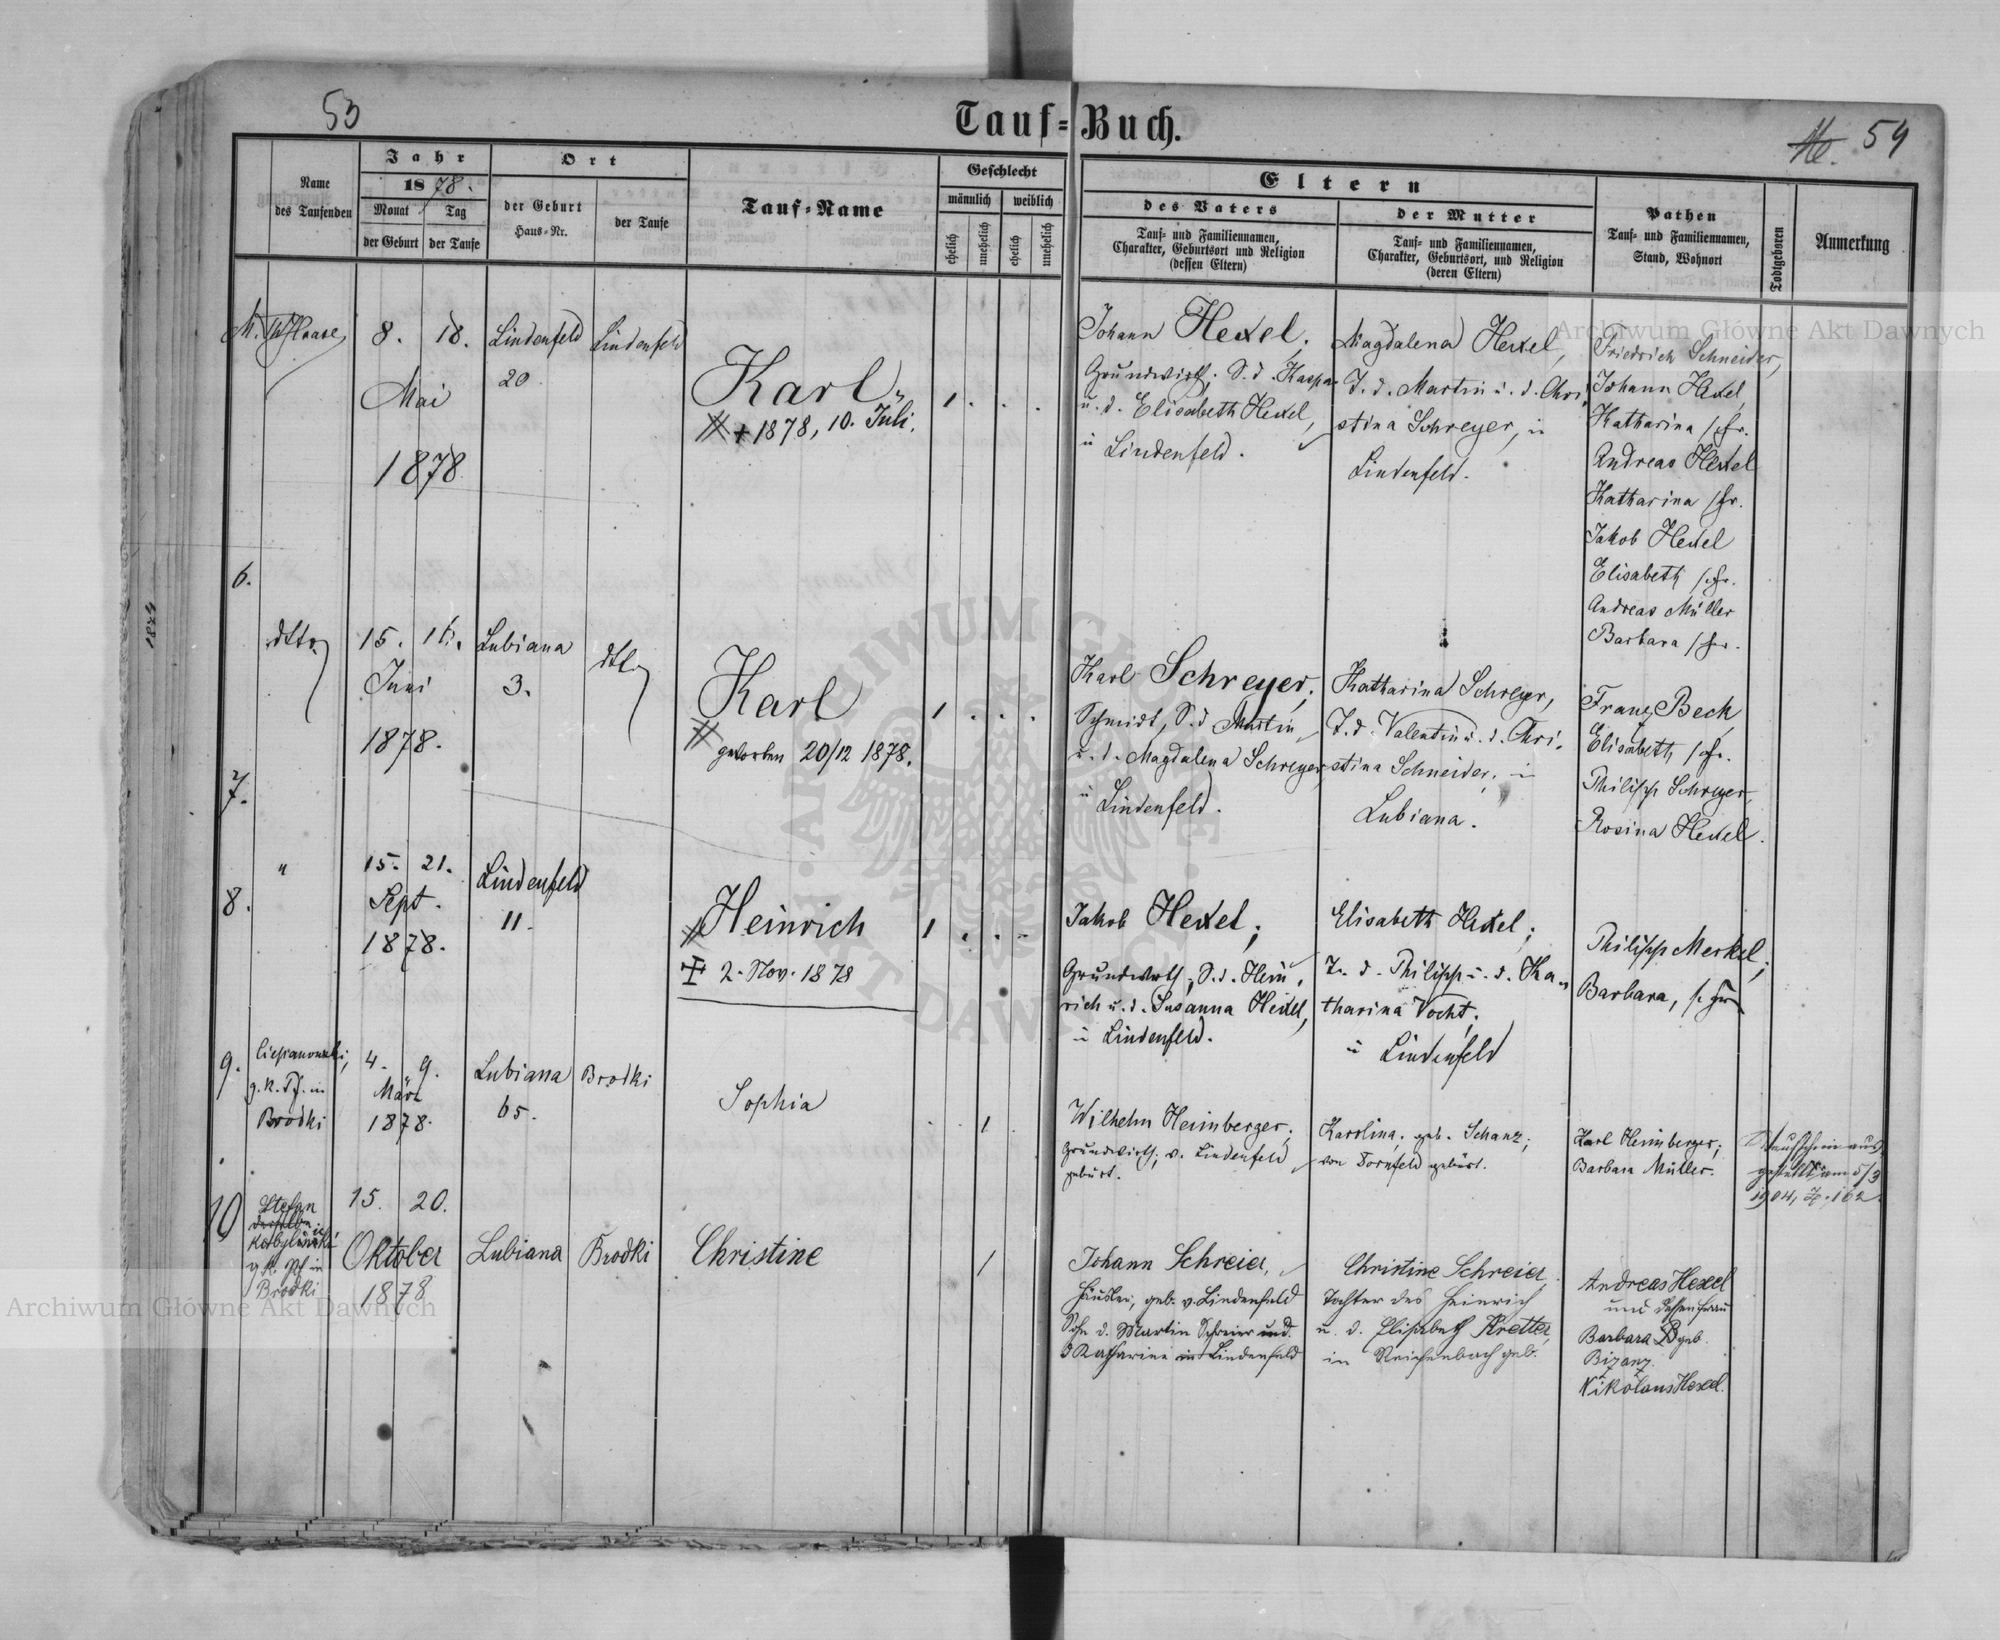 53
Tauf-Buch.
54
Name
des Taufenden
Jahr
1878.
Monat
Tag
der Geburt
der Taufe
Ort
der Geburt
Haus-Nr.
der Taufe
Tauf-Name
Geschlecht
männlich
weiblich
ehelich
unehelich
ehelich
unehelich
Eltern
des Vaters
Tauf- und Familiennamen,
Charakter, Geburtsort und Religion
(dessen Eltern)
der Mutter
Tauf- und Familiennamen,
Charakter, Geburtsort, und Religion
(deren Eltern)
Pathen
Tauf- und Familiennamen,
Stand, Wohnort
Todtgeboren
Anmerkung
6.
Haase
8. 18.
Mai
1878
Lindenfeld
20
Lindenfeld
Karl
+ 1878, 10. Juli.
1 . . .
Johann Hexel,
Grundwirth, S. d. Kaspar
u. d. Elisabeth Hexel,
in Lindenfeld.
Magdalena Hexel,
T. d. Martin u. d. Chri-
stina Schreyer, in
Lindenfeld.
Friedrich Schneider,
Johann Hexel,
Katharina s. Fr.
Andreas Hexel
Katharina s. Fr.
Jakob Hexel
Elisabeth s. Fr.
Andreas Müller
Barbara s. Fr.
7.
dtto
15. 16.
Juni
1878.
Lubiana
3.
dtto
Karl
gestorben 20/12 1878.
1 . . .
Karl Schreyer,
Schmidt, S. d Martin
u. d. Magdalena Schreyer
in Lindenfeld.
Katharina Schreyer,
T. d. Valentin u. d. Chri-
stina Schneider, in
Lubiana.
Franz Beck
Elisabeth s. Fr.
Philipp Schreyer
Rosina Hexel.
8.
"
15. 21.
Sept.
1878.
Lindenfeld
11.
Heinrich
2. Nov. 1878
1 . . .
Jakob Hexel,
Grundwirth, S. d. Hein-
rich u. d. Susanna Hexel,
in Lindenfeld.
Elisabeth Hexel,
T. d. Philipp u. d. Ka-
tharina Vocht,
in Lindenfeld
Philipp Merkel,
Barbara, s. Fr
9.
g. k. Pf. in
Brodki
4. 9.
März
1878.
Lubiana
65.
Brodki
Sophia
. . 1 .
Wilhelm Heimberger,
Grundwirth, v. Lindenfeld
gebürt.
Karolina, geb. Schanz,
von Dornfeld gebürt.
Karl Heimberger,
Barbara Müller.
Taufschein aus
gestellt am 5/3
1904, Z. 162
10
Stefan
g k. Pf in
Brodki
15. 20.
Oktober
1878
Lubiana
Brodki
Christine
1
Johann Schreier,
Häusler, geb. v. Lindenfeld
Sohn d. Martin Schreier und
d Katharine in Lindenfeld
Christine Schreier,
Tochter des Heinrich
u. d. Elisabeth Kretter,
in Reichenbach geb.
Andreas Hexel
und dessen Frau
Barbara geb.
Bizanz.
Nikolaus Hexel.
1878
Archiwum Główne Akt Dawnych
Archiwum Główne Akt Dawnych